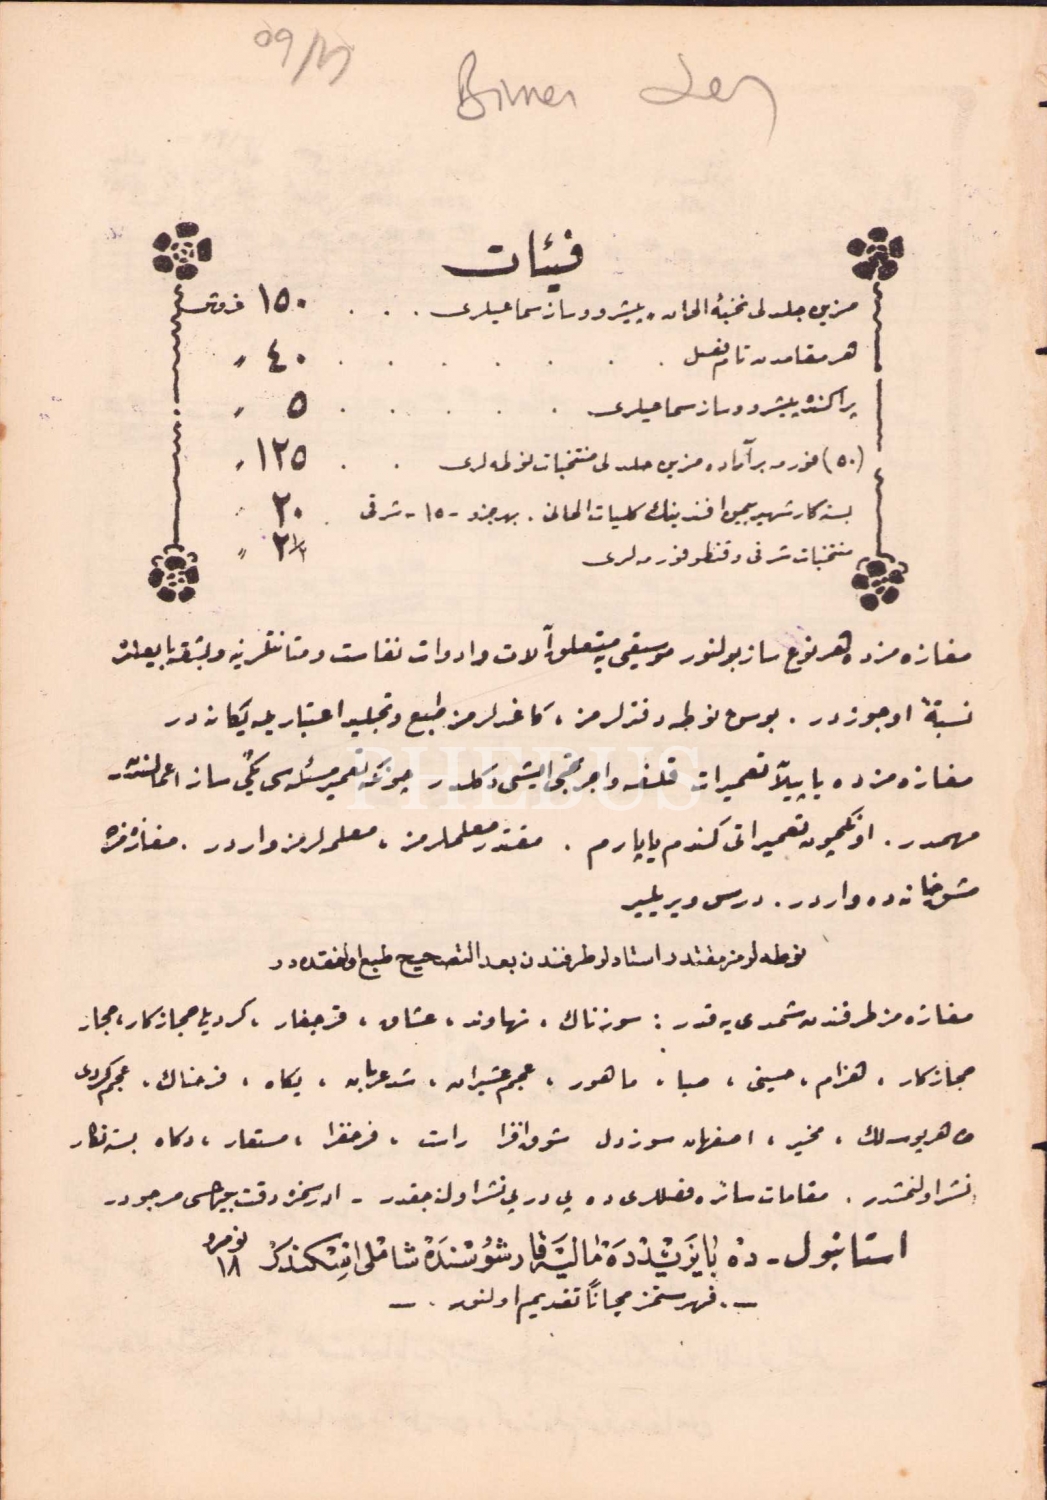 فيئات
مزين جلدلى نخبۀ الحان، پيشرو وساز سماعيلرى . . . ١٥٠ غروش
هر مقامدن تام فصل . . . . . . . ٤٠ ״
پراكنده پيشرو وساز سماعيلرى . . . . . ٥ ״
(٥٠) فورمه بر آراده مزين جلدلى منتخبات نوطه لرى . . ١٢٥ ״
بسته كار شهير افندينك كليات الحانى . بهر جزو -١٥- شرقى . ٢٠ ״
منتخبات شرقى وقانطو فورمه لرى ٢١/٢ ״
مغازه مزده هر نوع ساز بولنور موسيقى يه متعلق آلات وادوات نفاست ومتانتلرينه
نسبةً اوجوزدر . بوس نوطه دفترلرمز ، كاغدلرمز طبع وتجليد اعتباريله يكانه در
مغازه مزده ياپيلان تعميرات قلفه واجر ايشى دكلدر چونكه تعمير مسئله سى يكى ساز اعمالندن
مهمدر . اونكيچون تعميراتى كندم ياپارم . مقتدر معلملرمز ، معلمه لرمز واردر . مغازه مزده
مشق خانه ده واردر . درس ويريلير
نوطه لرمز مقتدر استادلر طرفندن بعد التصحيح طبع اولنمقده در
مغازه مز طرفندن شمدى يه قدر : سوزناك ، نهاوند ، عشاق ، قرجغار ، كرديلى حجازكار ، حجاز
حجازكار ، هزام ، حسينى ، صبا ، ماهور ، عجم عشيران ، شد عربان ، يكاه ، فرحناك ، عجم كردى
بوسه لك ، مخير ، اصفهان سوزدل شوق افزا راست ، فرحفزا ، مستعار ، دكاه بسته نكار
نشر اولنمشدر . مقامات سائره فصللرى ده پى در پى نشر اولنه جقدر -
استانبول - ده بايزيدده ماليه قارشوسنده شاملى اسكندر نومرو ١٨
— . فهرستمز مجاناً تقديم اولنور . —
PHEBUS